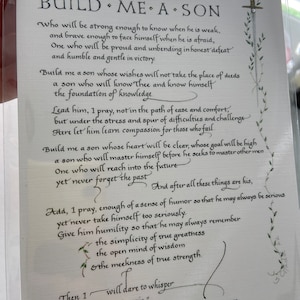 BUILD · ME · A · SON
Who will be strong enough to know when he is weak,
and brave enough to face himself when he is afraid,
One who will be proud and unbending in honest defeat
and humble and gentle in victory
Build me a son whose wishes will not take the place of deeds
a son who will know Thee and know himself
the foundation of knowledge
Lead him, I pray, not in the path of ease and comfort,
but under the stress and spur of difficulties and challenge
Here let him learn compassion for those who fail
Build me a son whose heart will be clear, whose goal will be high
a son who will master himself before he seeks to master other men
One who will reach into the future
yet never forget the past
And after all these things are his,
Add, I pray, enough of a sense of humor so that he may always be serious
yet never take himself too seriously
Give him humility so that he may always remember
the simplicity of true greatness
the open mind of wisdom
& the meekness of true strength
Then I will dare to whisper